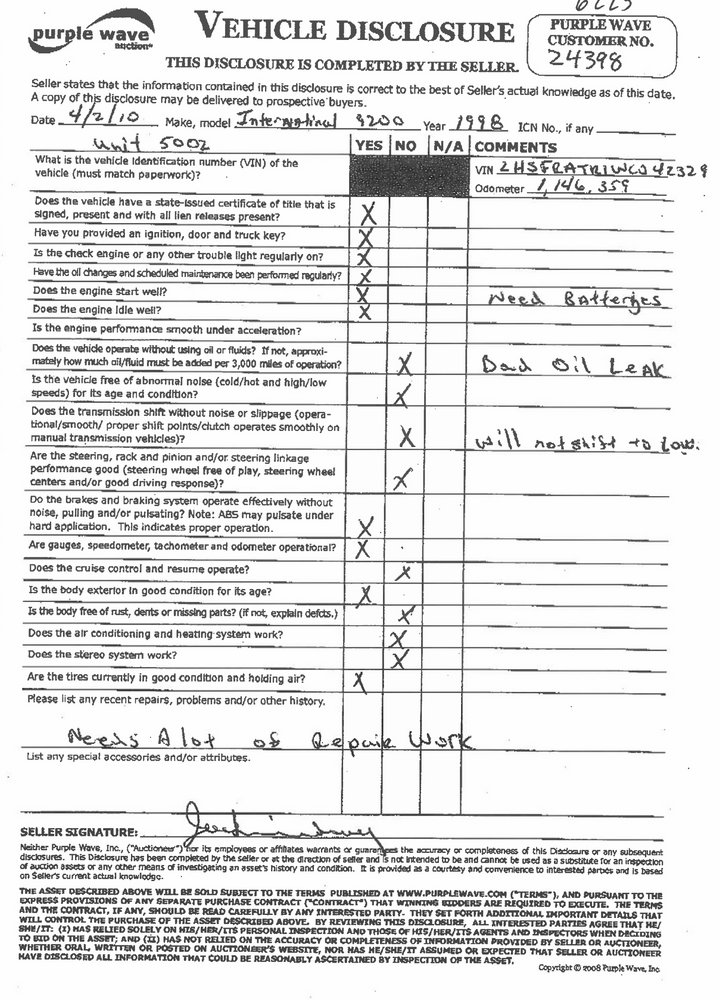 purple wave
auction
VEHICLE DISCLOSURE
PURPLE WAVE
CUSTOMER NO.
24398
THIS DISCLOSURE IS COMPLETED BY THE SELLER.
Seller states that the information contained in this disclosure is correct to the best of Seller's actual knowledge as of this date.
A copy of this disclosure may be delivered to prospective buyers.
Date 4/2/10 Make, model International 9200 Year 1998 ICN No., if any
Unit 5002 YES NO N/A COMMENTS
What is the vehicle identification number (VIN) of the
vehicle (must match paperwork)?
VIN 2HSFRATR1WC042329
Odometer 1,146,359
Does the vehicle have a state-issued certificate of title that is
signed, present and with all lien releases present? X
Have you provided an ignition, door and truck key? X
Is the check engine or any other trouble light regularly on? X
Have the oil changes and scheduled maintenance been performed regularly? X
Does the engine start well? X Need Batteries
Does the engine idle well? X
Is the engine performance smooth under acceleration?
Does the vehicle operate without using oil or fluids? If not, approxi-
mately how much oil/fluid must be added per 3,000 miles of operation? X Bad Oil Leak
Is the vehicle free of abnormal noise (cold/hot and high/low
speeds) for its age and condition? X
Does the transmission shift without noise or slippage (opera-
tional/smooth/ proper shift points/clutch operates smoothly on
manual transmission vehicles)? X will not shift to Low.
Are the steering, rack and pinion and/or steering linkage
performance good (steering wheel free of play, steering wheel
centers and/or good driving response)? X
Do the brakes and braking system operate effectively without
noise, pulling and/or pulsating? Note: ABS may pulsate under
hard application. This indicates proper operation. X
Are gauges, speedometer, tachometer and odometer operational? X
Does the cruise control and resume operate? X
Is the body exterior in good condition for its age? X
Is the body free of rust, dents or missing parts? (if not, explain defcts.) X
Does the air conditioning and heating system work? X
Does the stereo system work? X
Are the tires currently in good condition and holding air? X
Please list any recent repairs, problems and/or other history.
Needs A lot of Repair Work
List any special accessories and/or attributes.
SELLER SIGNATURE:
Neither Purple Wave, Inc., ("Auctioneer") nor its employees or affiliates warrants or guarantees the accuracy or completeness of this Disclosure or any subsequent
disclosures. This Disclosure has been completed by the seller or at the direction of seller and is not intended to be and cannot be used as a substitute for an inspection
of auction assets or any other means of investigating an asset's history and condition. It is provided as a courtesy and convenience to interested parties and is based
on Seller's current actual knowledge.
THE ASSET DESCRIBED ABOVE WILL BE SOLD SUBJECT TO THE TERMS PUBLISHED AT WWW.PURPLEWAVE.COM ("TERMS"), AND PURSUANT TO THE
EXPRESS PROVISIONS OF ANY SEPARATE PURCHASE CONTRACT ("CONTRACT") THAT WINNING BIDDERS ARE REQUIRED TO EXECUTE. THE TERMS
AND THE CONTRACT, IF ANY, SHOULD BE READ CAREFULLY BY ANY INTERESTED PARTY. THEY SET FORTH ADDITIONAL IMPORTANT DETAILS THAT
WILL CONTROL THE PURCHASE OF THE ASSET DESCRIBED ABOVE. BY REVIEWING THIS DISCLOSURE, ALL INTERESTED PARTIES AGREE THAT HE/
SHE/IT: (I) HAS RELIED SOLELY ON HIS/HER/ITS PERSONAL INSPECTION AND THOSE OF HIS/HER/ITS AGENTS AND INSPECTORS WHEN DECIDING
TO BID ON THE ASSET; AND (II) HAS NOT RELIED ON THE ACCURACY OR COMPLETENESS OF INFORMATION PROVIDED BY SELLER OR AUCTIONEER,
WHETHER ORAL, WRITTEN OR POSTED ON AUCTIONEER'S WEBSITE, NOR HAS HE/SHE/IT ASSUMED OR EXPECTED THAT SELLER OR AUCTIONEER
HAVE DISCLOSED ALL INFORMATION THAT COULD BE REASONABLY ASCERTAINED BY INSPECTION OF THE ASSET.
Copyright © 2008 Purple Wave, Inc.